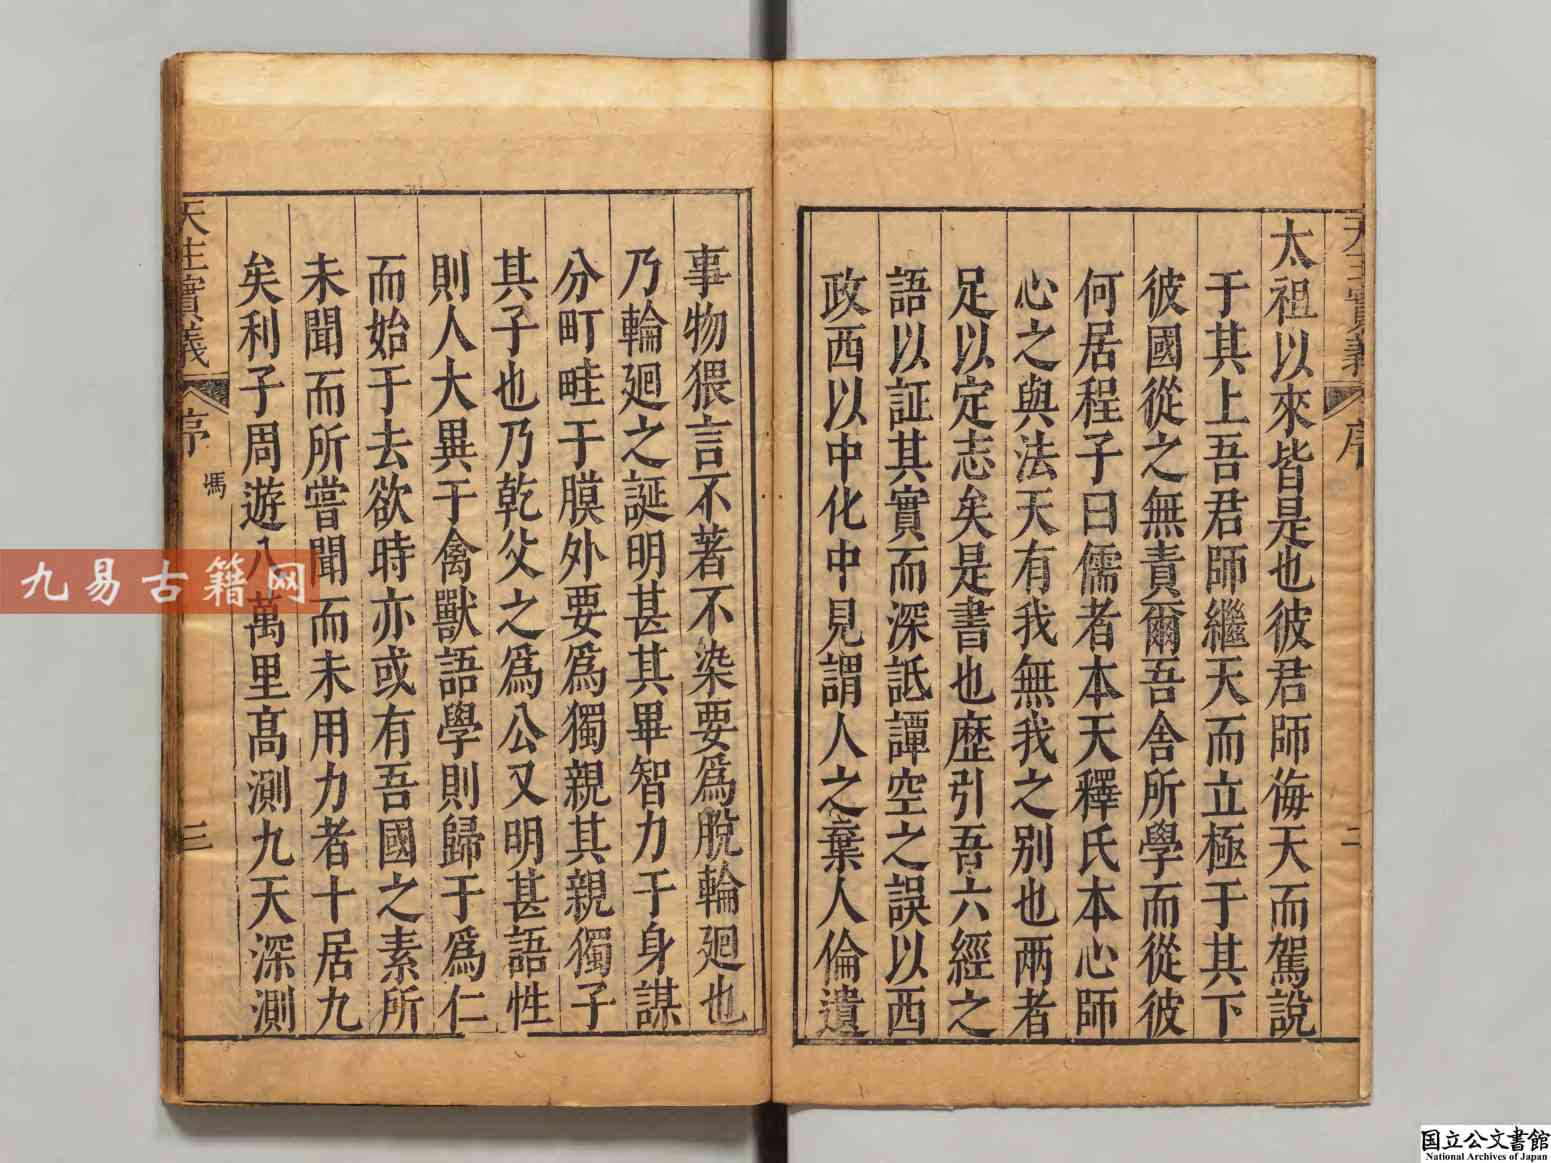 天主實義
序
二
太祖以來皆是也彼君師侮天而駕說
于其上吾君師繼天而立極于其下
彼國從之無責爾吾舍所學而從彼
何居程子曰儒者本天釋氏本心師
心之與法天有我無我之别也兩者
足以定志矣是書也歷引吾六經之
語以証其實而深詆譚空之誤以西
政西以中化中見謂人之棄人倫遺
事物猥言不著不染要爲脫輪廻也
乃輪廻之誕明甚其畢智力于身謀
分町畦于膜外要爲獨親其親獨子
其子也乃乾父之爲公又明甚語性
則人大異于禽獸語學則歸于爲仁
而始于去欲時亦或有吾國之素所
未聞而所嘗聞而未用力者十居九
矣利子周遊八萬里高測九天深測
天主實義
序
三
九易古籍网
国立公文書館
National Archives of Japan